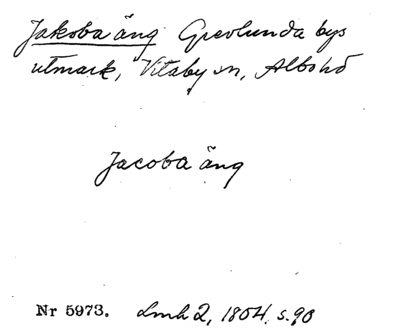 Jakoba äng Grevlunda bys
utmark, Vitaby sn, Albo hd
Jacoba äng
Nr 5973. Lmh 2, 1804, s. 90